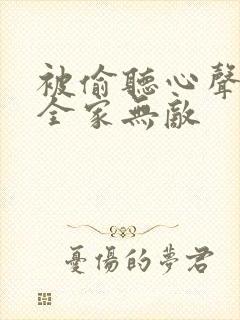 被偷聽心聲
全家無敵
憂傷的夢君